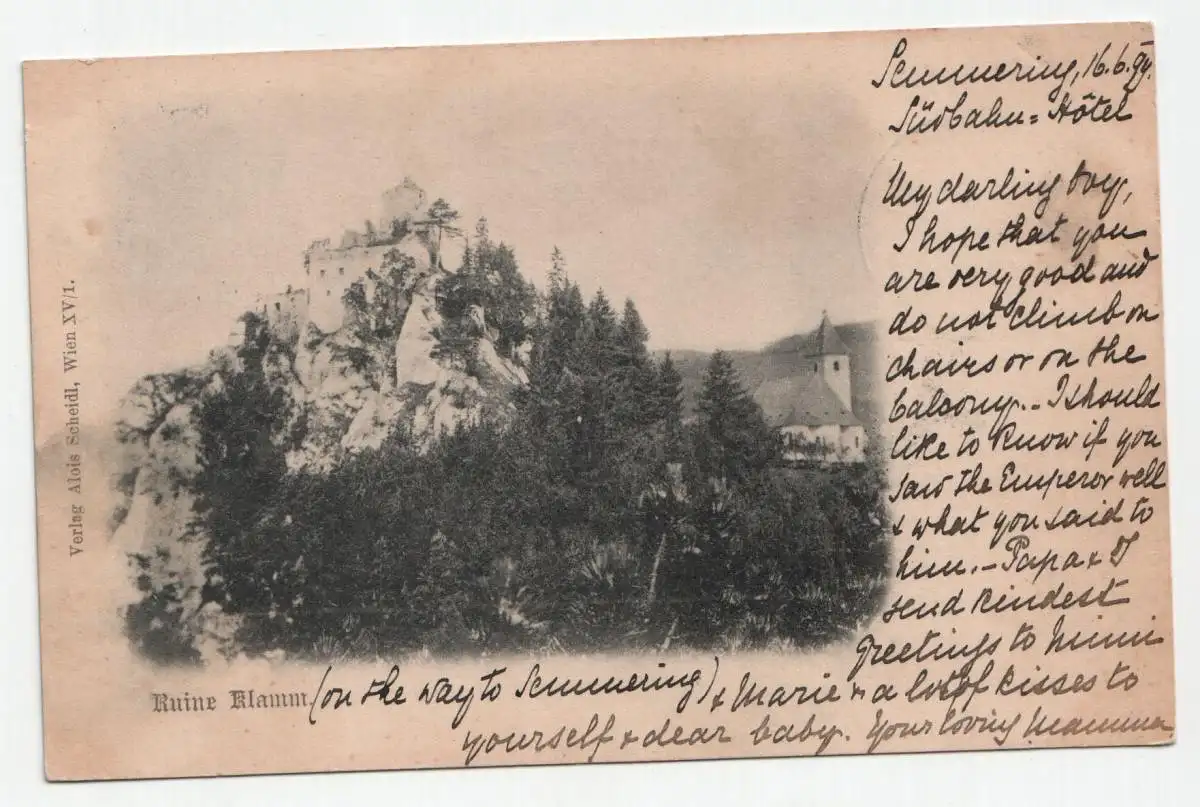 Semmering, 16.6.99.
Südbahn=Hôtel
My darling boy,
I hope that you
are very good and
do not climb on
chairs or on the
balcony. - I should
like to know if you
saw the Emperor well
& what you said to
him. - Papa & I
send kindest
greetings to Mimi
& Marie & a lot of kisses to
yourself & dear baby. Your loving Mamma
Ruine Klamm. (on the way to Semmering)
Verlag Alois Scheidl, Wien XV/1.